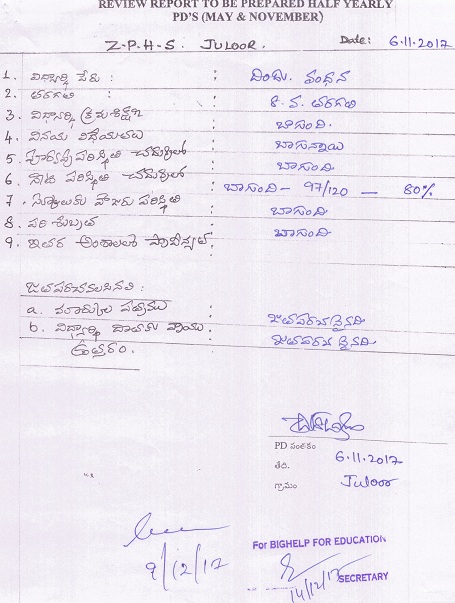 REVIEW REPORT TO BE PREPARED HALF YEARLY
PD'S (MAY & NOVEMBER)
Z.P.H.S. JULOOR. Date: 6.11.2017
1. విద్యార్థి పేరు : దిండు. వందన
2. తరగతి : 8. వ. తరగతి
3. విద్యార్థి క్రమశిక్షణ : బాగుంది.
4. వినయ విధేయతలు : బాగున్నాయి
5. పరిస్థితి చదువులో : బాగుంది
6. పరిస్థితి చదువులో : బాగుంది - 97/120 - 80%
7. స్కూలుకు హాజరు పరిస్థితి : బాగుంది
8. పరిశుభ్రత : బాగుంది
9. ఇతర అంశాలలో
జతపరచవలసినవి :
a. మార్కుల పత్రము : జతపరచడైనది
b. విద్యార్థి దాతకు వ్రాయు. : జతపరచడైనది
ఉత్తరం.
PD సంతకం
తేది. 6.11.2017
గ్రామం Juloor
9/12/17
For BIGHELP FOR EDUCATION
14/12/17 SECRETARY